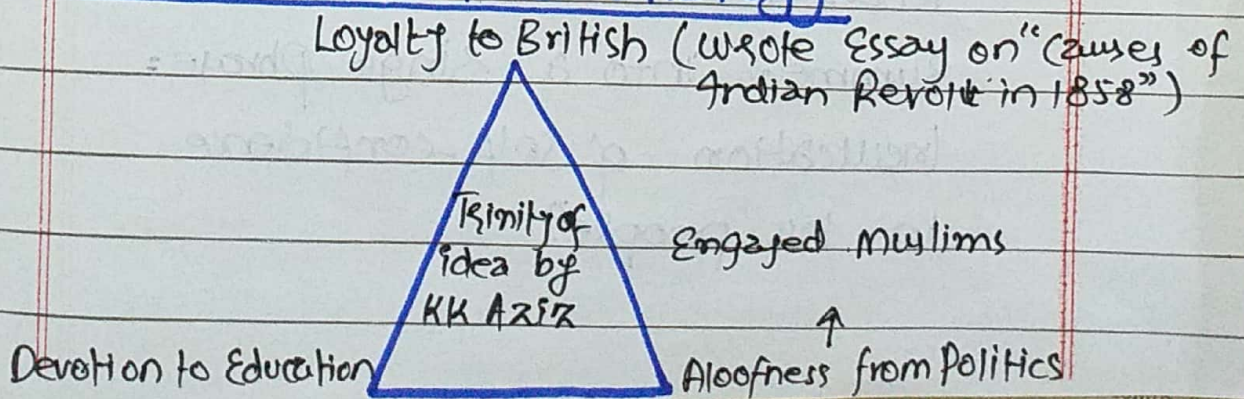 Loyalty to British (wrote Essay on "Causes of
Indian Revolt in 1858")
Trinity of
idea by
KK Aziz
Engaged Muslims
↑
Devotion to Education
Aloofness from Politics